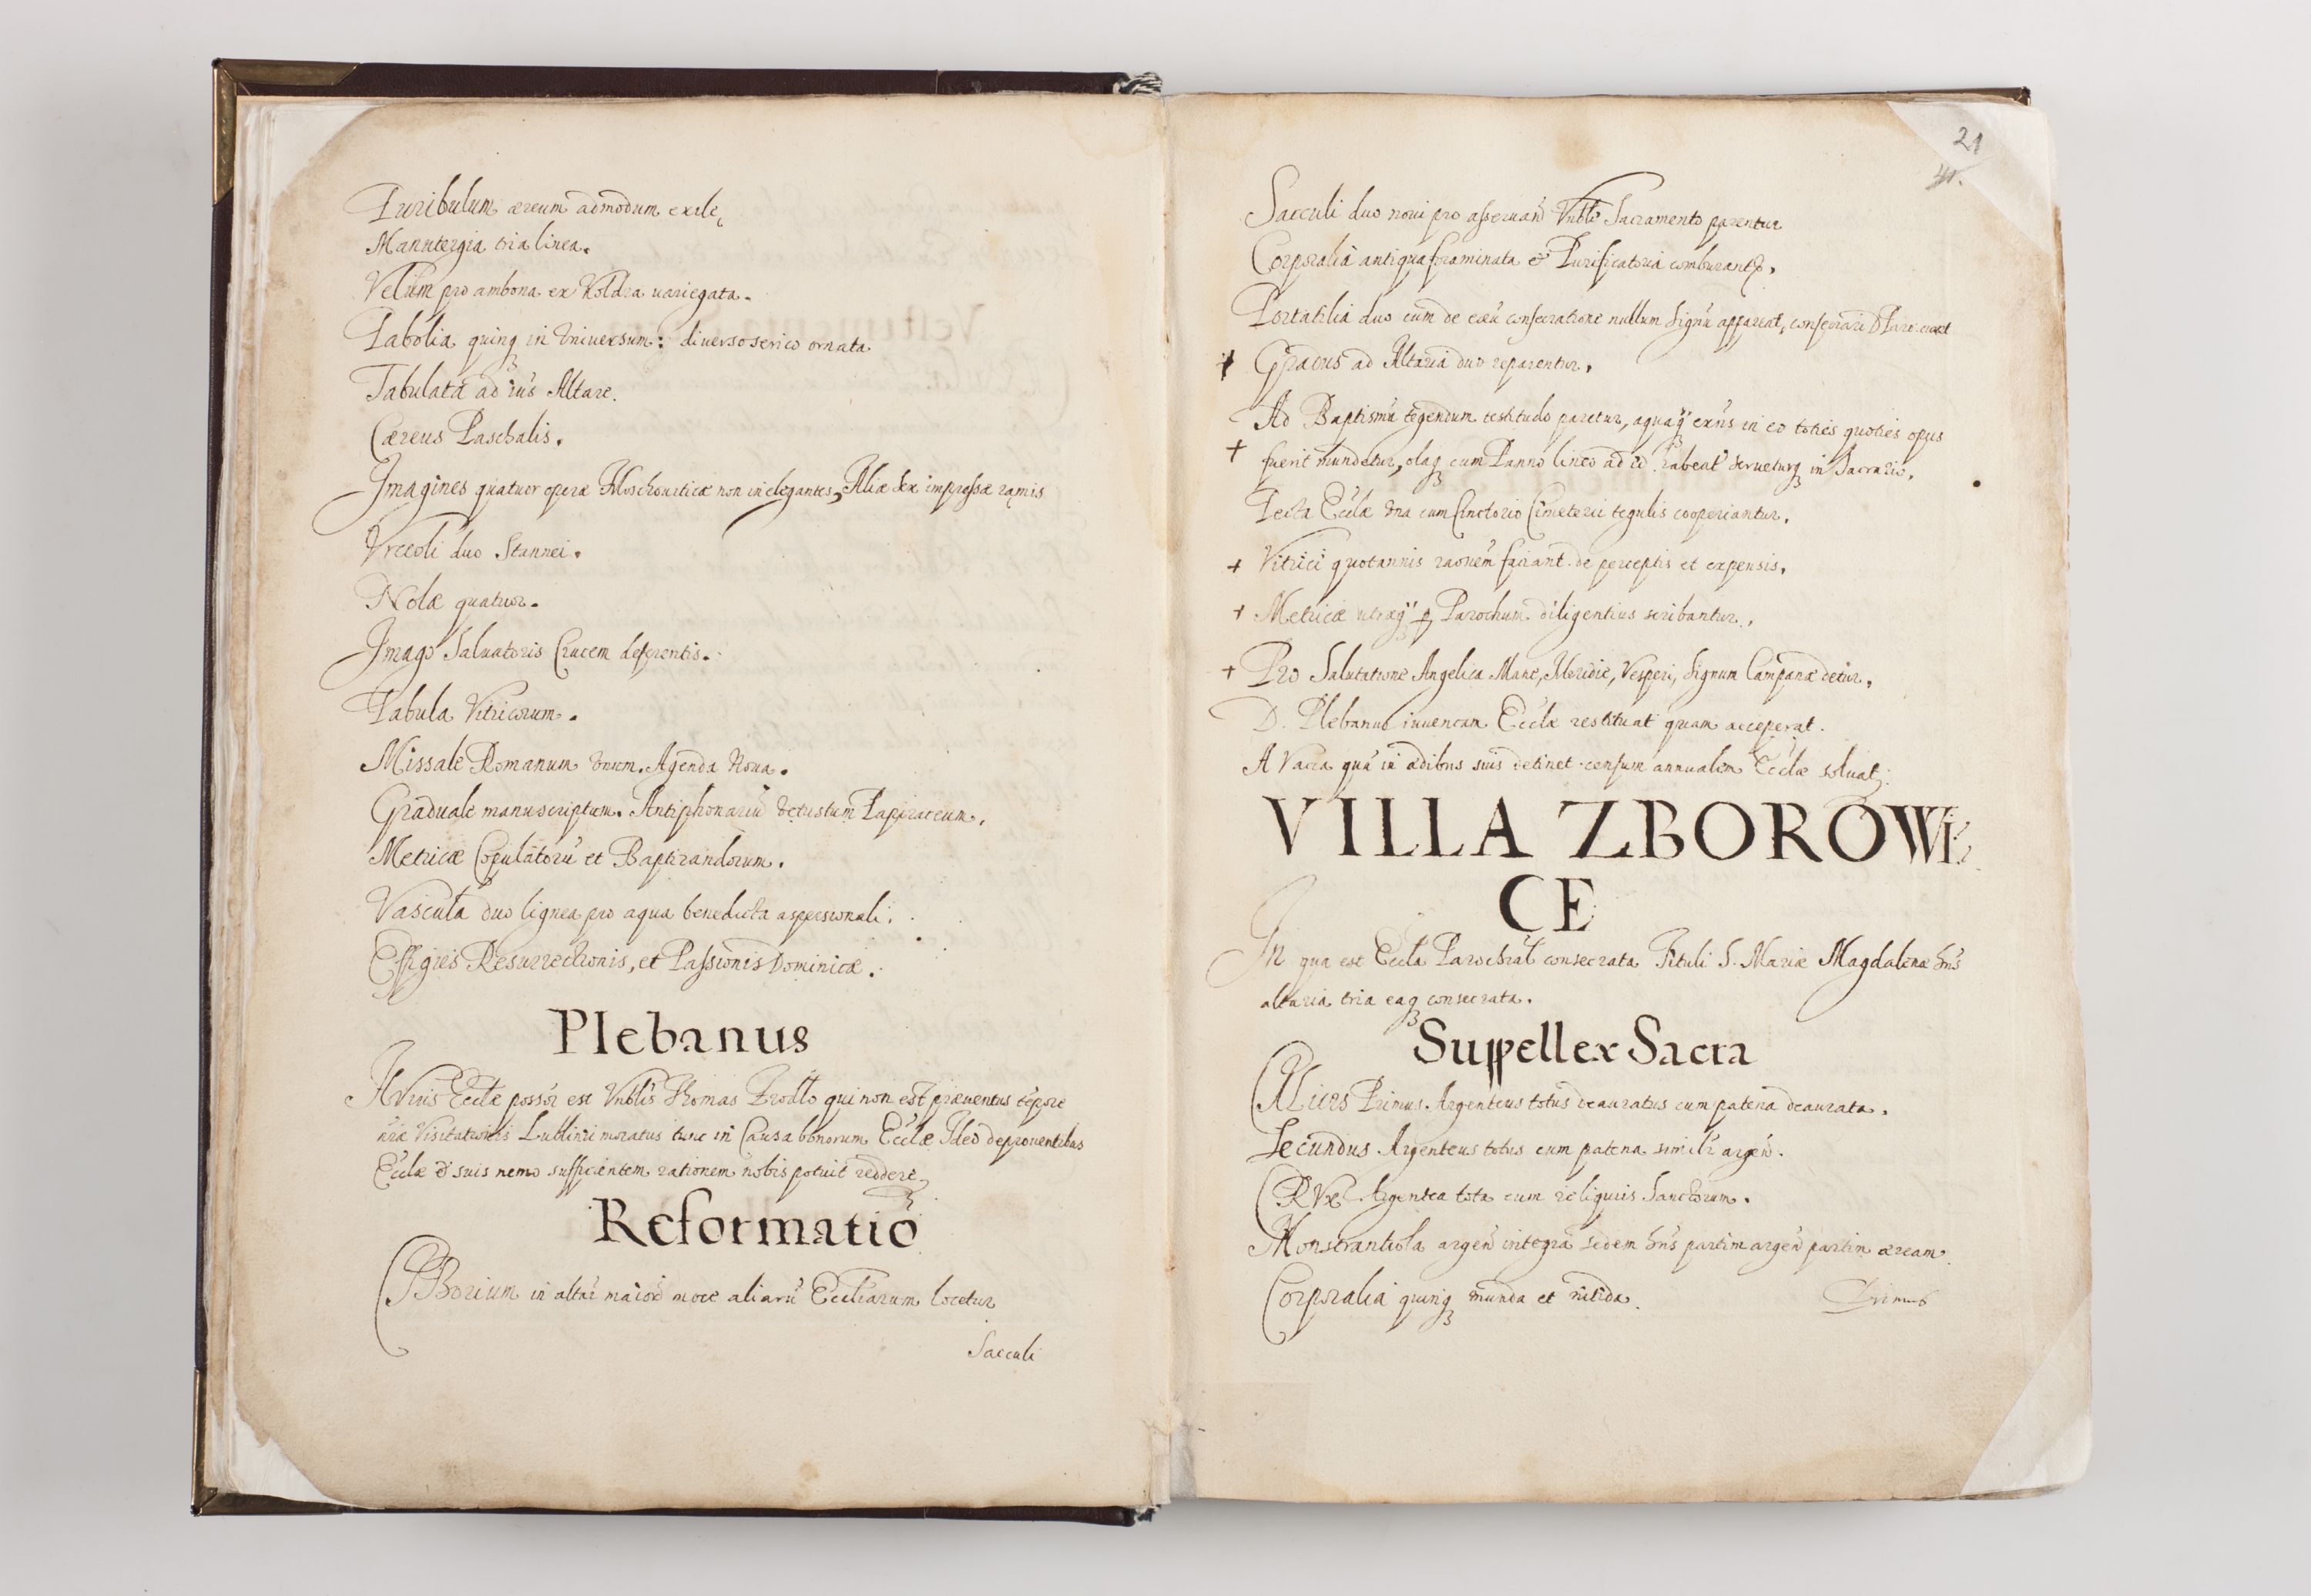 Turibulum aereum admodum exile
Manutergia tria linea.
Velum pro ambona ex Koldra uariegata.
Pabolia quinq in Uniuersum: diuerso serico ornata
Tabulata ad ius Altare.
Caereus Paschalis.
Imagines quatuor operae Moschouiticae non inelegantes, Aliae sex impressae ramis
Vrceoli duo Stannei.
Nolae quatuor.
Imago Saluatoris Crucem deferentis.
Tabula Vitricorum.
Missale Romanum vnum. Agenda Noua.
Graduale manuscriptum. Antiphonariū vetustum Papiraceum.
Metricae Copulatorū et Baptizandorum.
Vascula duo lignea pro aqua benedicta aspersionali.
Effigies Resurrectionis, et Passionis Dominicae.
Plebanus
HVius Ecclae possor est Vnblis Thomas qui non est praeuentus tēpore
nrae Visitationis Lublini moratus tunc in Causa bonorum Ecclae Ideo de prouentibus
Ecclae & suis nemo sufficientem rationem nobis potuit reddere
Reformatio
CIBorium in altari maiori more aliarū Eccliarum locetur
Sacculi
21
41.
Sacculi duo noui pro asseruand Vnbli Sacramento parentur
Corporalia antiqua foraminata & Purificatoria comburantur.
Portatilia duo cum de earu consecratione nullum signū appareat, consecrari D Paro: curet
+ Gradus ad Altaria duo reparentur.
Ad Baptismū tegendum testitudo paretur, aquaq exns in eo toties quoties opus
+ fuerit mundetur, olaq cum Panno lineo ad id habeat serueturq in Sacrario.
Tecta Ecclae vna cum Cinctorio Cimeterii tegulis cooperiantur.
+ Vitrici quotannis raonem faciant de perceptis et expensis.
+ Metricae utraeq p Parochum diligentius scribantur.
+ Pro Salutatione Angelica Mane, Meridie, Vesperi, signum Campanae detur.
D. Plebanus iuuencam Ecclae restituat quam acceperat.
A Vacca quā in aedibus suis detinet censum annualem Ecclae soluat
VILLA ZBOROWI
CE
In qua est Eccla Parochial consecrata Tituli S. Mariae Magdalenae hns
altaria tria eaq consecrata.
Suppellex Sacra
CALicrs Primus. Argenteus totus deauratus cum patena deaurata.
Secundus Argenteus totus cum patena simili argen.
CRVx Argentea tota cum reliquiis Sanctorum.
Monstrantiola argen integra sedem hns partim argen partim aeream
Corporalia quinq munda et nitida.
Primus